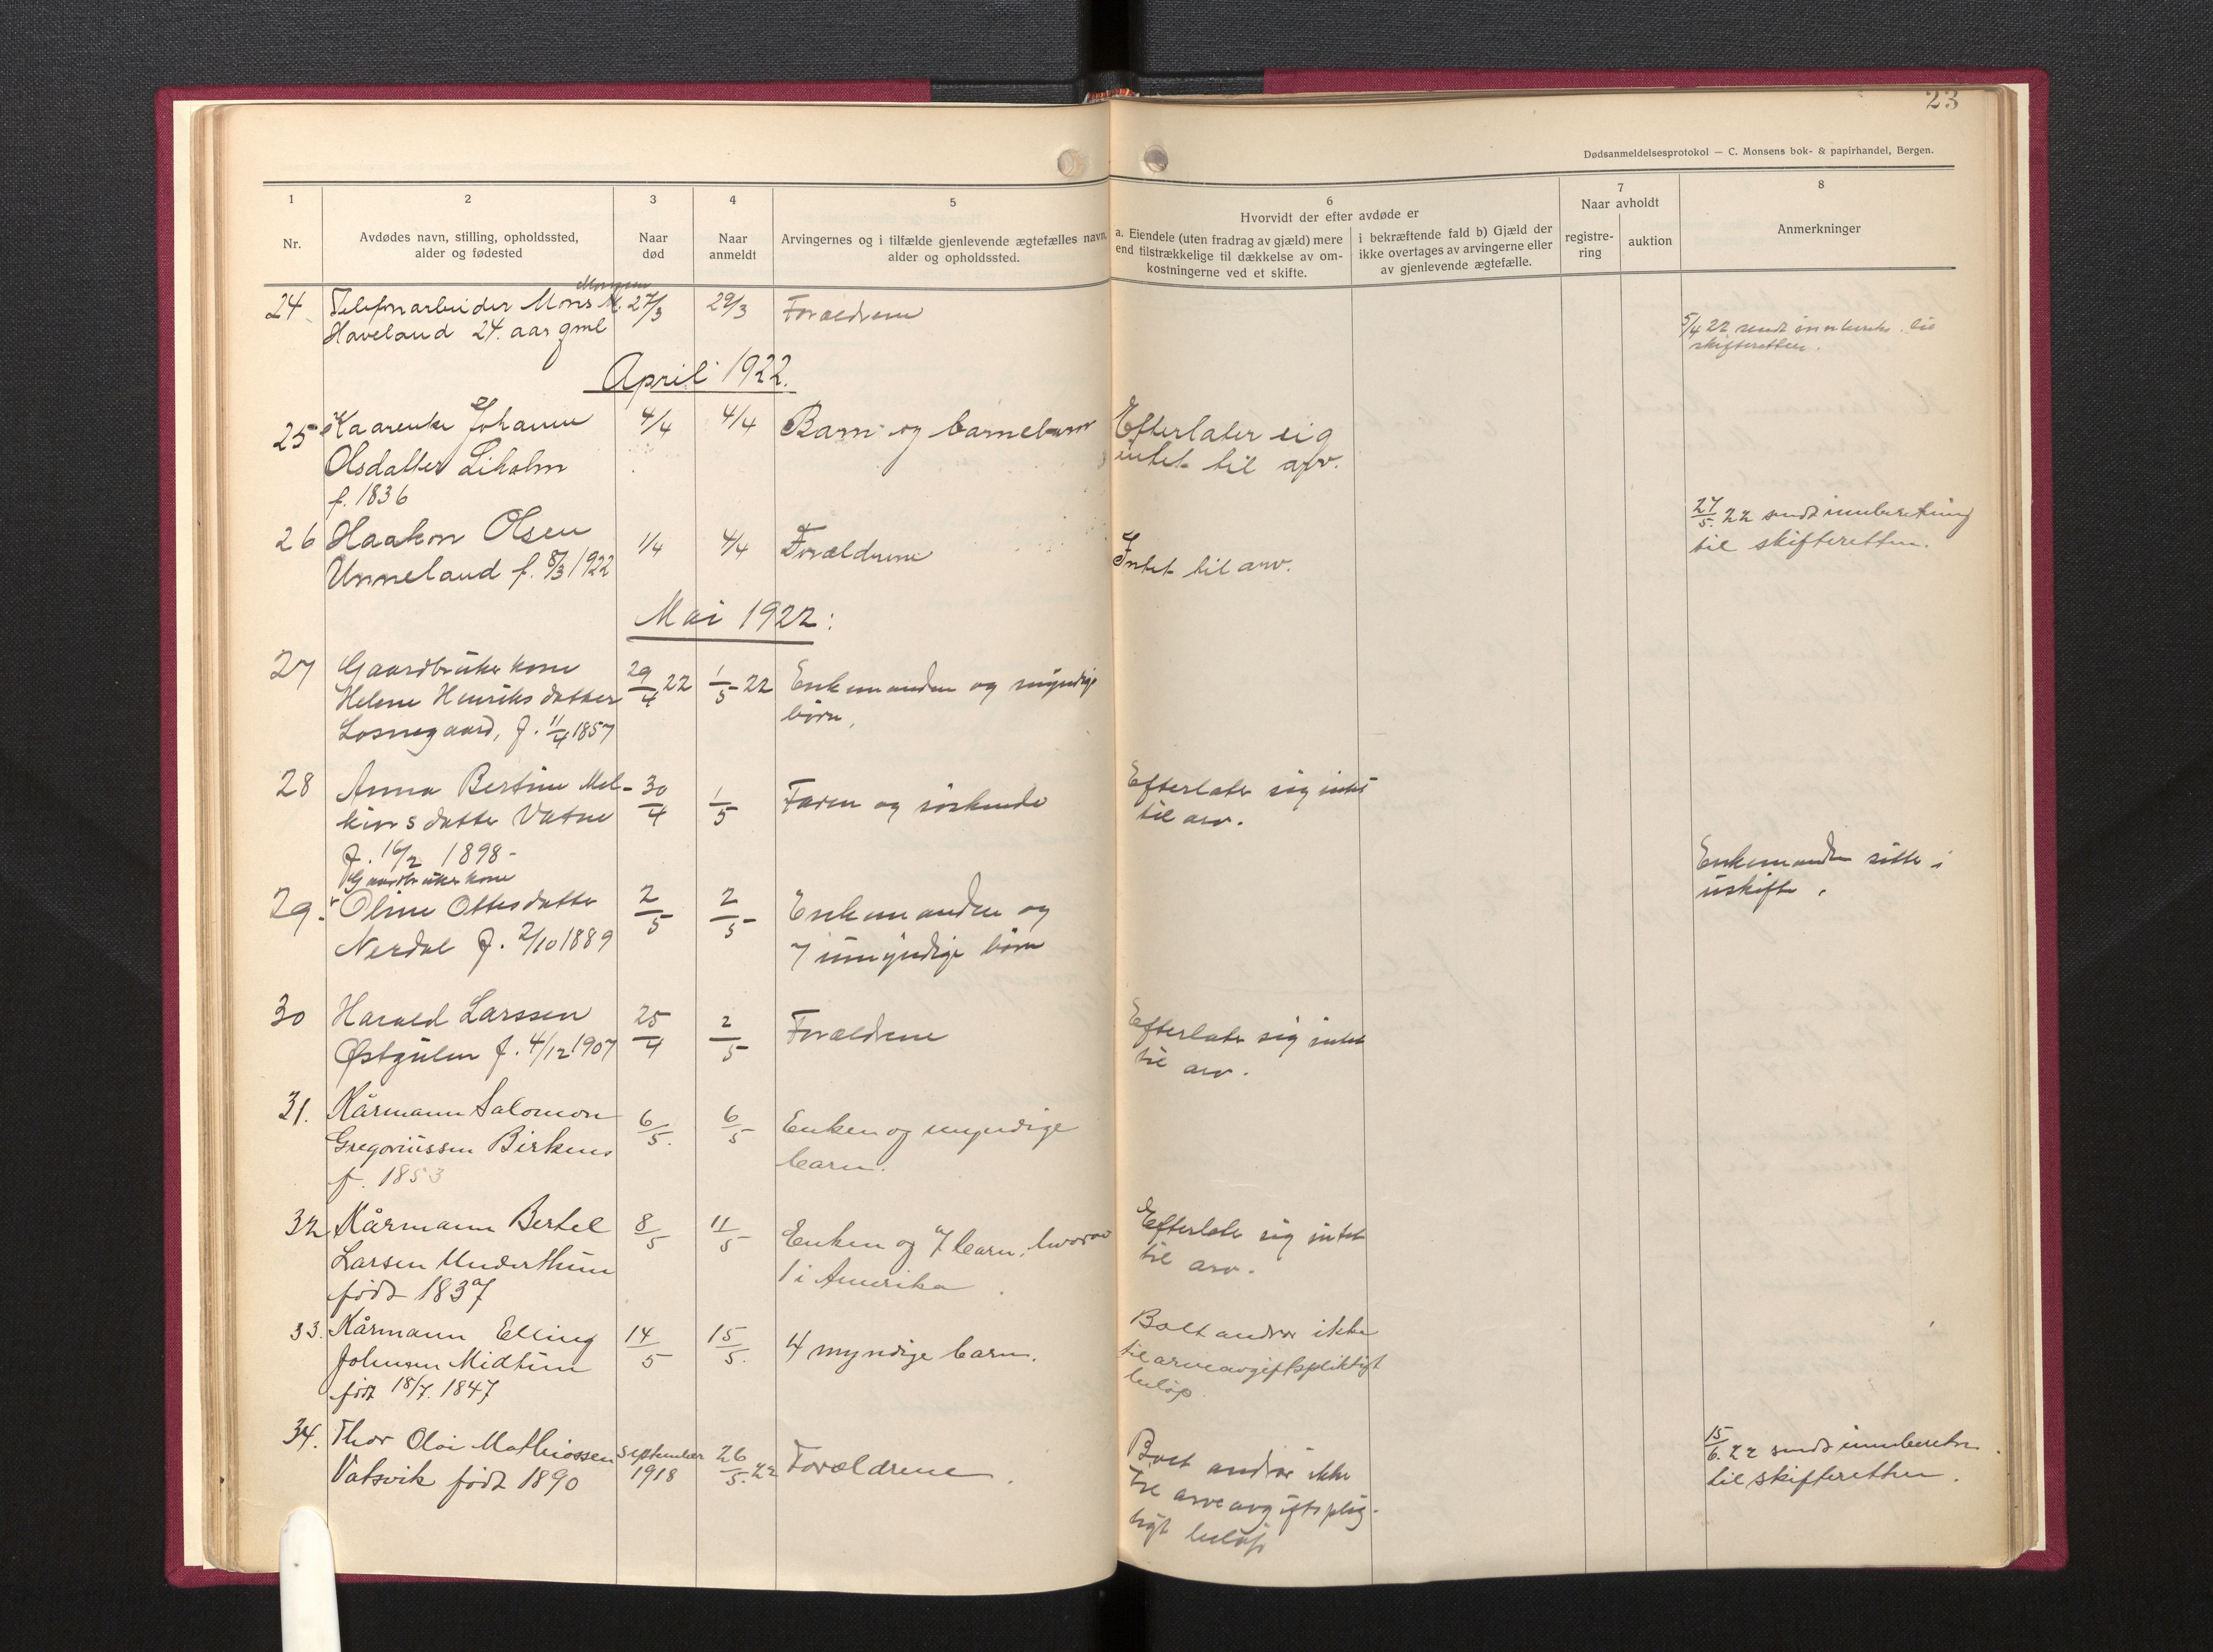 23
Dødsanmeldelsesprotokol — C. Monsens bok- & papirhandel, Bergen.
1
Nr.
2
Avdødes navn, stilling, opholdssted,
alder og fødested
3
Naar
død
4
Naar
anmeldt
5
Arvingernes og i tilfælde gjenlevende ægtefælles navn,
alder og opholdssted.
6
Hvorvidt der efter avdøde er
a. Eiendele (uten fradrag av gjæld) mere
end tilstrækkelige til dækkelse av om-
kostningerne ved et skifte.
i bekræftende fald b) Gjæld der
ikke overtages av arvingerne eller
av gjenlevende ægtefælle.
7
Naar avholdt
registre-
ring
auktion
8
Anmerkninger
Monsen
24 Telefonarbeider Mons M. 27/3 29/3 Forældrene
Haveland 24. aar gml
5/4 22 sendt innberetn. til
skifteretten.
April 1922.
25 Kaarenke Johanne 4/4 4/4 Barn og barnebarn Efterlater sig
Olsdatter Liholm intet til arv.
f. 1836
26 Haakon Olsen 1/4 4/4 Forældrene Intet til arv.
Unneland f. 8/3 1922
27/5. 22 sendt innberetning
til skifteretten.
Mai 1922:
27 Gaardbruker kone 29/4 22 1/5 22 Enkemanden og myndige
Helene Henriksdatter børn.
Losnegaard, f. 11/4 1857
28 Anna Bertine Mel- 30/4 1/5 Faren og søskende Efterlater sig intet
kiorsdatter Vatne til arv.
f. 16/2 1898-
Gaardbruker kone
29. Oline Ottesdatter 2/5 2/5 Enkemanden og
Nerdal f. 2/10 1889 7 umyndige børn
Enkemanden sitter i
uskifte.
30 Harald Larssen 25/4 2/5 Forældrene Efterlater sig intet
Østgulen f. 4/12 1907 til arv.
31. Kårmann Salomon 6/5. 6/5 Enken og myndige
Gregoriussen Birkenes barn.
f. 1853
32 Kårmann Bertel 8/5 11/5 Enken og 7 barn, hvorav Efterlater sig intet
Larsen Underthun 1 i Amerika til arv.
født 1837
33. Kårmann Elling 14/5 15/5. 4 myndige barn. Boet andrar ikke
Johnsen Midtun til arveavgiftspliktigt
født 18/7. 1847 beløp.
34. Thor Olai Mathiassen September 26/5. 22 Forældrene. Boet andrar ikke
Vatsvik født 1890 1918 til arveavgiftsplig-
tigt beløp
15/6. 22 sendt innberetn.
til skifteretten.